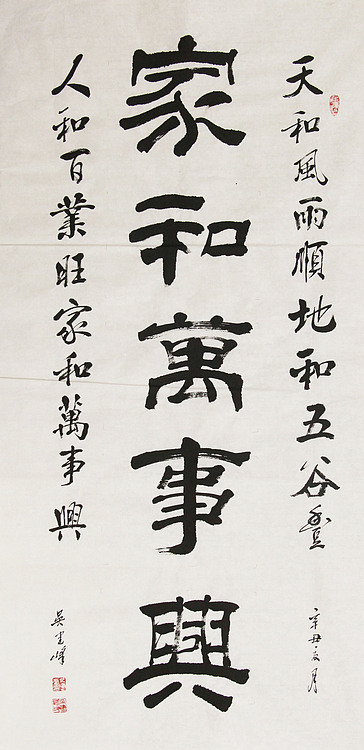 天和風雨順地和五谷豐
辛丑夏月
家和萬事興
人和百業旺家和萬事興
吳峰